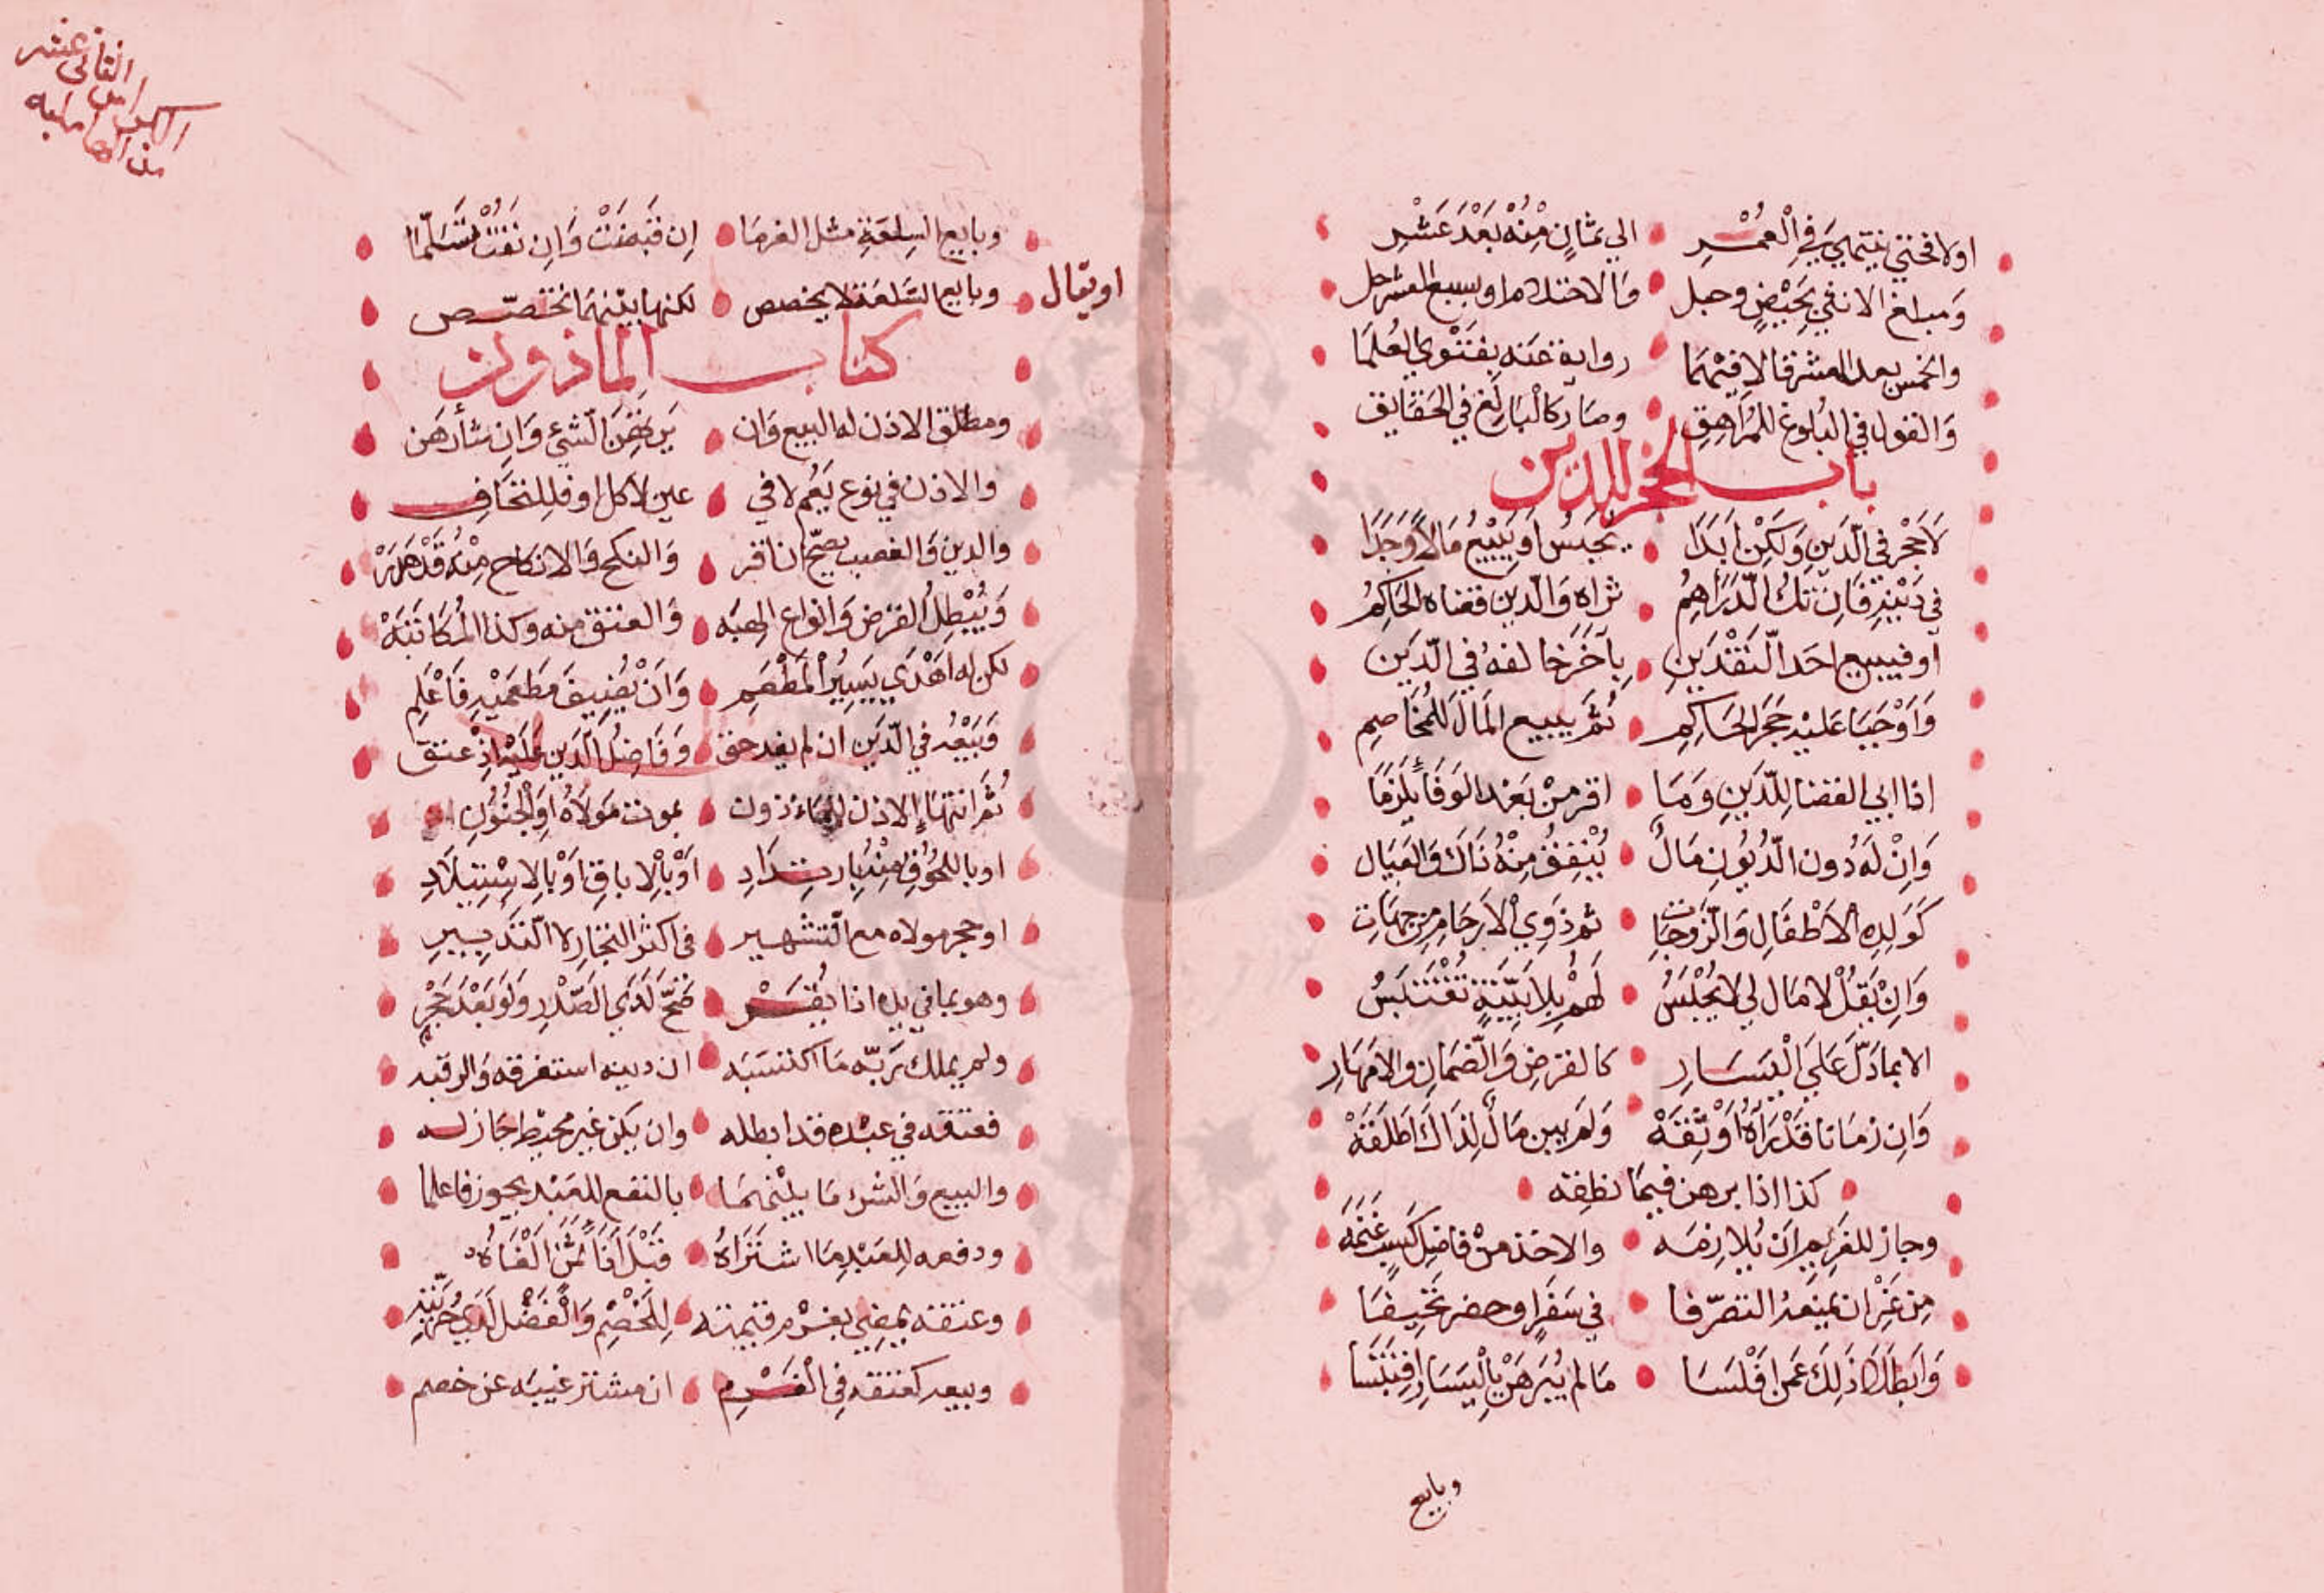 اولا فحتي ينتهي في الْعُمْرِ الي ثمانٍ مِنْهُ بَعْدَ عَشْرِ
وَمبلغ الانثي بحَيْضٍ وحبل وَالاحتلام او بسبع العشر حل
والخمس بعد العشر قالا فيْهمَا رواية عَنه بفَتْوي العُلمَا
وَالقول في البُلوغ للمُرَاهِقِ وصَار كالْبَالِغ في الحَقَايق
باب الحجر للدين
لاَ حَجْر في الدَّينِ وَلَكِنْ ابَدَا يحبَسُ اوْ يَبِيْعُ مَالاً وَجَدَا
في دَيْنِهِ فَاِن تَكُ الدَّرَاهِمُ ثراه وَالدين قضاه الحَاكِمُ
او فيبيع احَد النَّقْدَينِ بِآخَر خَالفهُ في الدَّيَن
وَاَوْجَبَا عَليْهِ حَجَر الحَاكِمِ ثُمَّ يبيع المَال لِلمُخَاصِمِ
اذا ابي القضا لِلدَّينِ وَمَا اقر مِنْ بَعْد الوَفَا يُلزَمَا
وَاِنْ لَهُ دُون الدُّيُونِ مَالُ يُنْفِقُ مِنْهُ ذَاكَ وَالعِيَال
كَوَلدِه الاَطْفَالِ وَالزَّوجَاتِ ثم ذَوِي الاَرحَامِ مِن جهَاتِ
وَاِنْ يَقُلْ لا مَال لي لا يُحْبَسُ لَهُمْ بِلا بَيِّنَةٍ تُقْتَبَسُ
الا بمَا دَلَّ عَلي الْيَسَارِ كالقرضِ وَالضَّمَانِ والامْهَارِ
وَاِن زمانا قَدْ رَآهُ اوْثِقَهْ وَلم يبين مَالُ لِذَاكَ اَطلَقَهْ
كذا اذا برهن فيمَا نطقه
وجاز للغَرِيم اَن يُلازمَه والاخذ مِنْ فاضِل كَسبٍ غَنِمَهَ
مِن غَيْر ان يمنعَهُ التصرّفا في سَفَرٍ او حضر تخَيفَا
وَابطلا ذَلِكَ عَمن افْلسَا مَا لم يُبَرهَنْ بِالْيَسَارِ اقِتبَسَا
وبايع
الثاني عشر
من
وبايع السِلعَةِ مثل الغرمَا اِن قَبَضَتْ وَاِن نفَتْ تسَلّمَا
او يقال وبايع السَّلعَة لا يخصص لكنها بينهمَا تختصّص
كتاب الماذون
ومطلق الاذن له البيع وَان يَرتهِن الشيْ وَاِن شأ رَهَن
والاذن في نوع يَعُم لا في عين لاكل او فلِلتخَافِ
والدين وَالغصب يصحّ ان اقر وَالنكح وَالانكاح مِنهُ قَدْ هَدَرْ
وَيُبْطِلُ القَرض وَانواع الهبَه وَالعتق منه وكذا المُكَاتبَهْ
لكن له اَهْدَي يَسِيْر المَطْعَمِ وَاَنْ يُضِيفَ مطعَمِيْهِ فَاعْلِمِ
وَبَيْعُه في الدَّين ان لم يفد حق وَفَاضِلُ الدَين عَلَيْهِ اِذْ عتق
ثُمَّ انتهَاء الاذن للمَاءذون بموت مَولاَهُ اوِ الجُنُونِ
او باللحُوقِ مِنْهُ بارتِدَادِ اَوْ بالاِباقِ اوْ بالاسْتِيلاَدِ
او حجر مولاه مع التشهير في اكثر التجار لا التدبيرِ
وهو بما في يده اذا يُقَرْ صَحَّ لَدَي الصّدْرِ وَلوَ بَعْدَ حَجْرِ
ولم يملك رَبّه مَا اكتسَبَه ان دينه استغرقه وَالرقبه
فعتقه في عبْده قد ابطله وان يكن غير محيط جَاز له
والبيع وَالشرء مَا بيْنهمَا بالنفع للعَبْد يجوز فاعلما
ودفعه لِلعَبْدِ مَا اشتَرَاهُ قَبْلَ اَدَآءِ ثمَنٍ اَلْفَاهُ
وعتقه يمضِي بغرْم قيمته لِلخَصْمِ وَالْفَضْل لَدَي حُرِّيَّتِهِ
وبيعه كعتقه فِي الْغَرْمِ ان مشتر غيبَه عن خصم